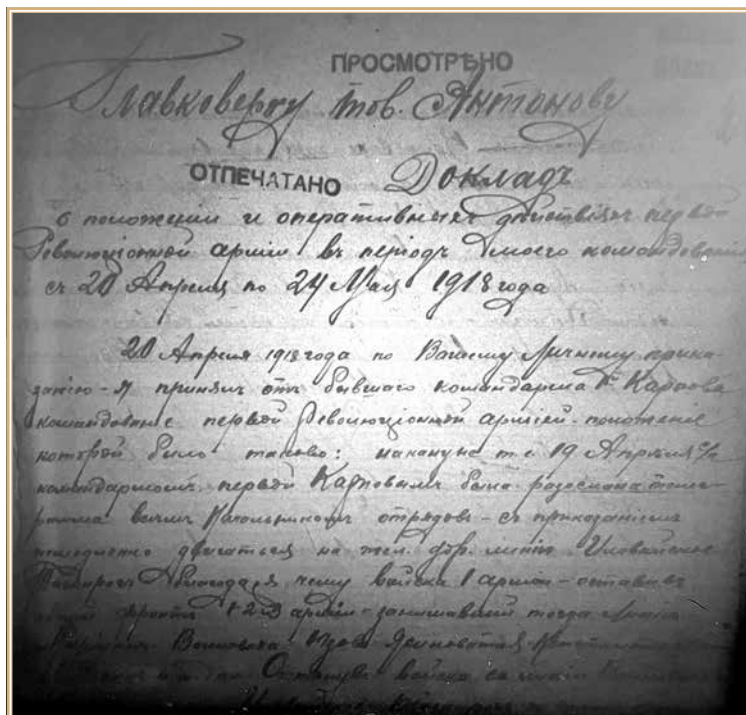 ПРОСМОТРѢНО
Главковерху тов. Антонову
ОТПЕЧАТАНО Докладъ
о положении и оперативныхъ дѣйствіяхъ первой
Революціонной арміи въ періодъ моего командованія
съ 20 Апреля по 24 Мая 1918 года
20 Апреля 1918 года по Вашему Личному прика-
занію - я принялъ отъ бывшаго командарма Карпова
командованіе первой Революціонной арміей. положеніе
которой было таково: накануне т.е. 19 Апреля
командармомъ первой Карповымъ была разослана теле-
грамма всемъ Начальникамъ отрядовъ - съ приказаніемъ
немедленно двигаться на жел. дор. линію Иловайское
Таганрогъ благодаря чему войска 1 арміи - оставивъ
фронтъ 1-2-3 арміи - занимавшій тогда
войска